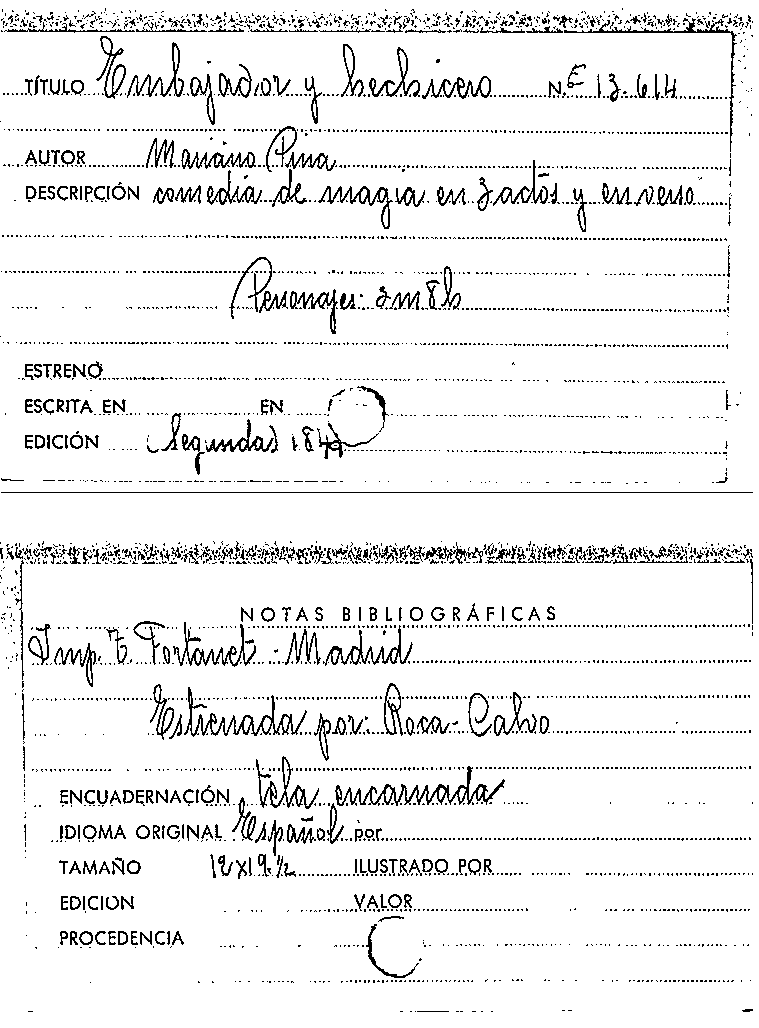 TÍTULO Embajador y hechicero N.E 13.614
AUTOR Mariano Pina
DESCRIPCIÓN comedia de magia en 3 actos y en verso
Personajes: 3m 8h
ESTRENO
ESCRITA EN EN
EDICIÓN (Segunda)
NOTAS BIBLIOGRÁFICAS
Imp. T. Fortanet - Madrid
Estrenada por: Roca - Calvo
ENCUADERNACIÓN tela encarnada
IDIOMA ORIGINAL Español por
TAMAÑO 12x19 ½ ILUSTRADO POR
EDICION VALOR
PROCEDENCIA